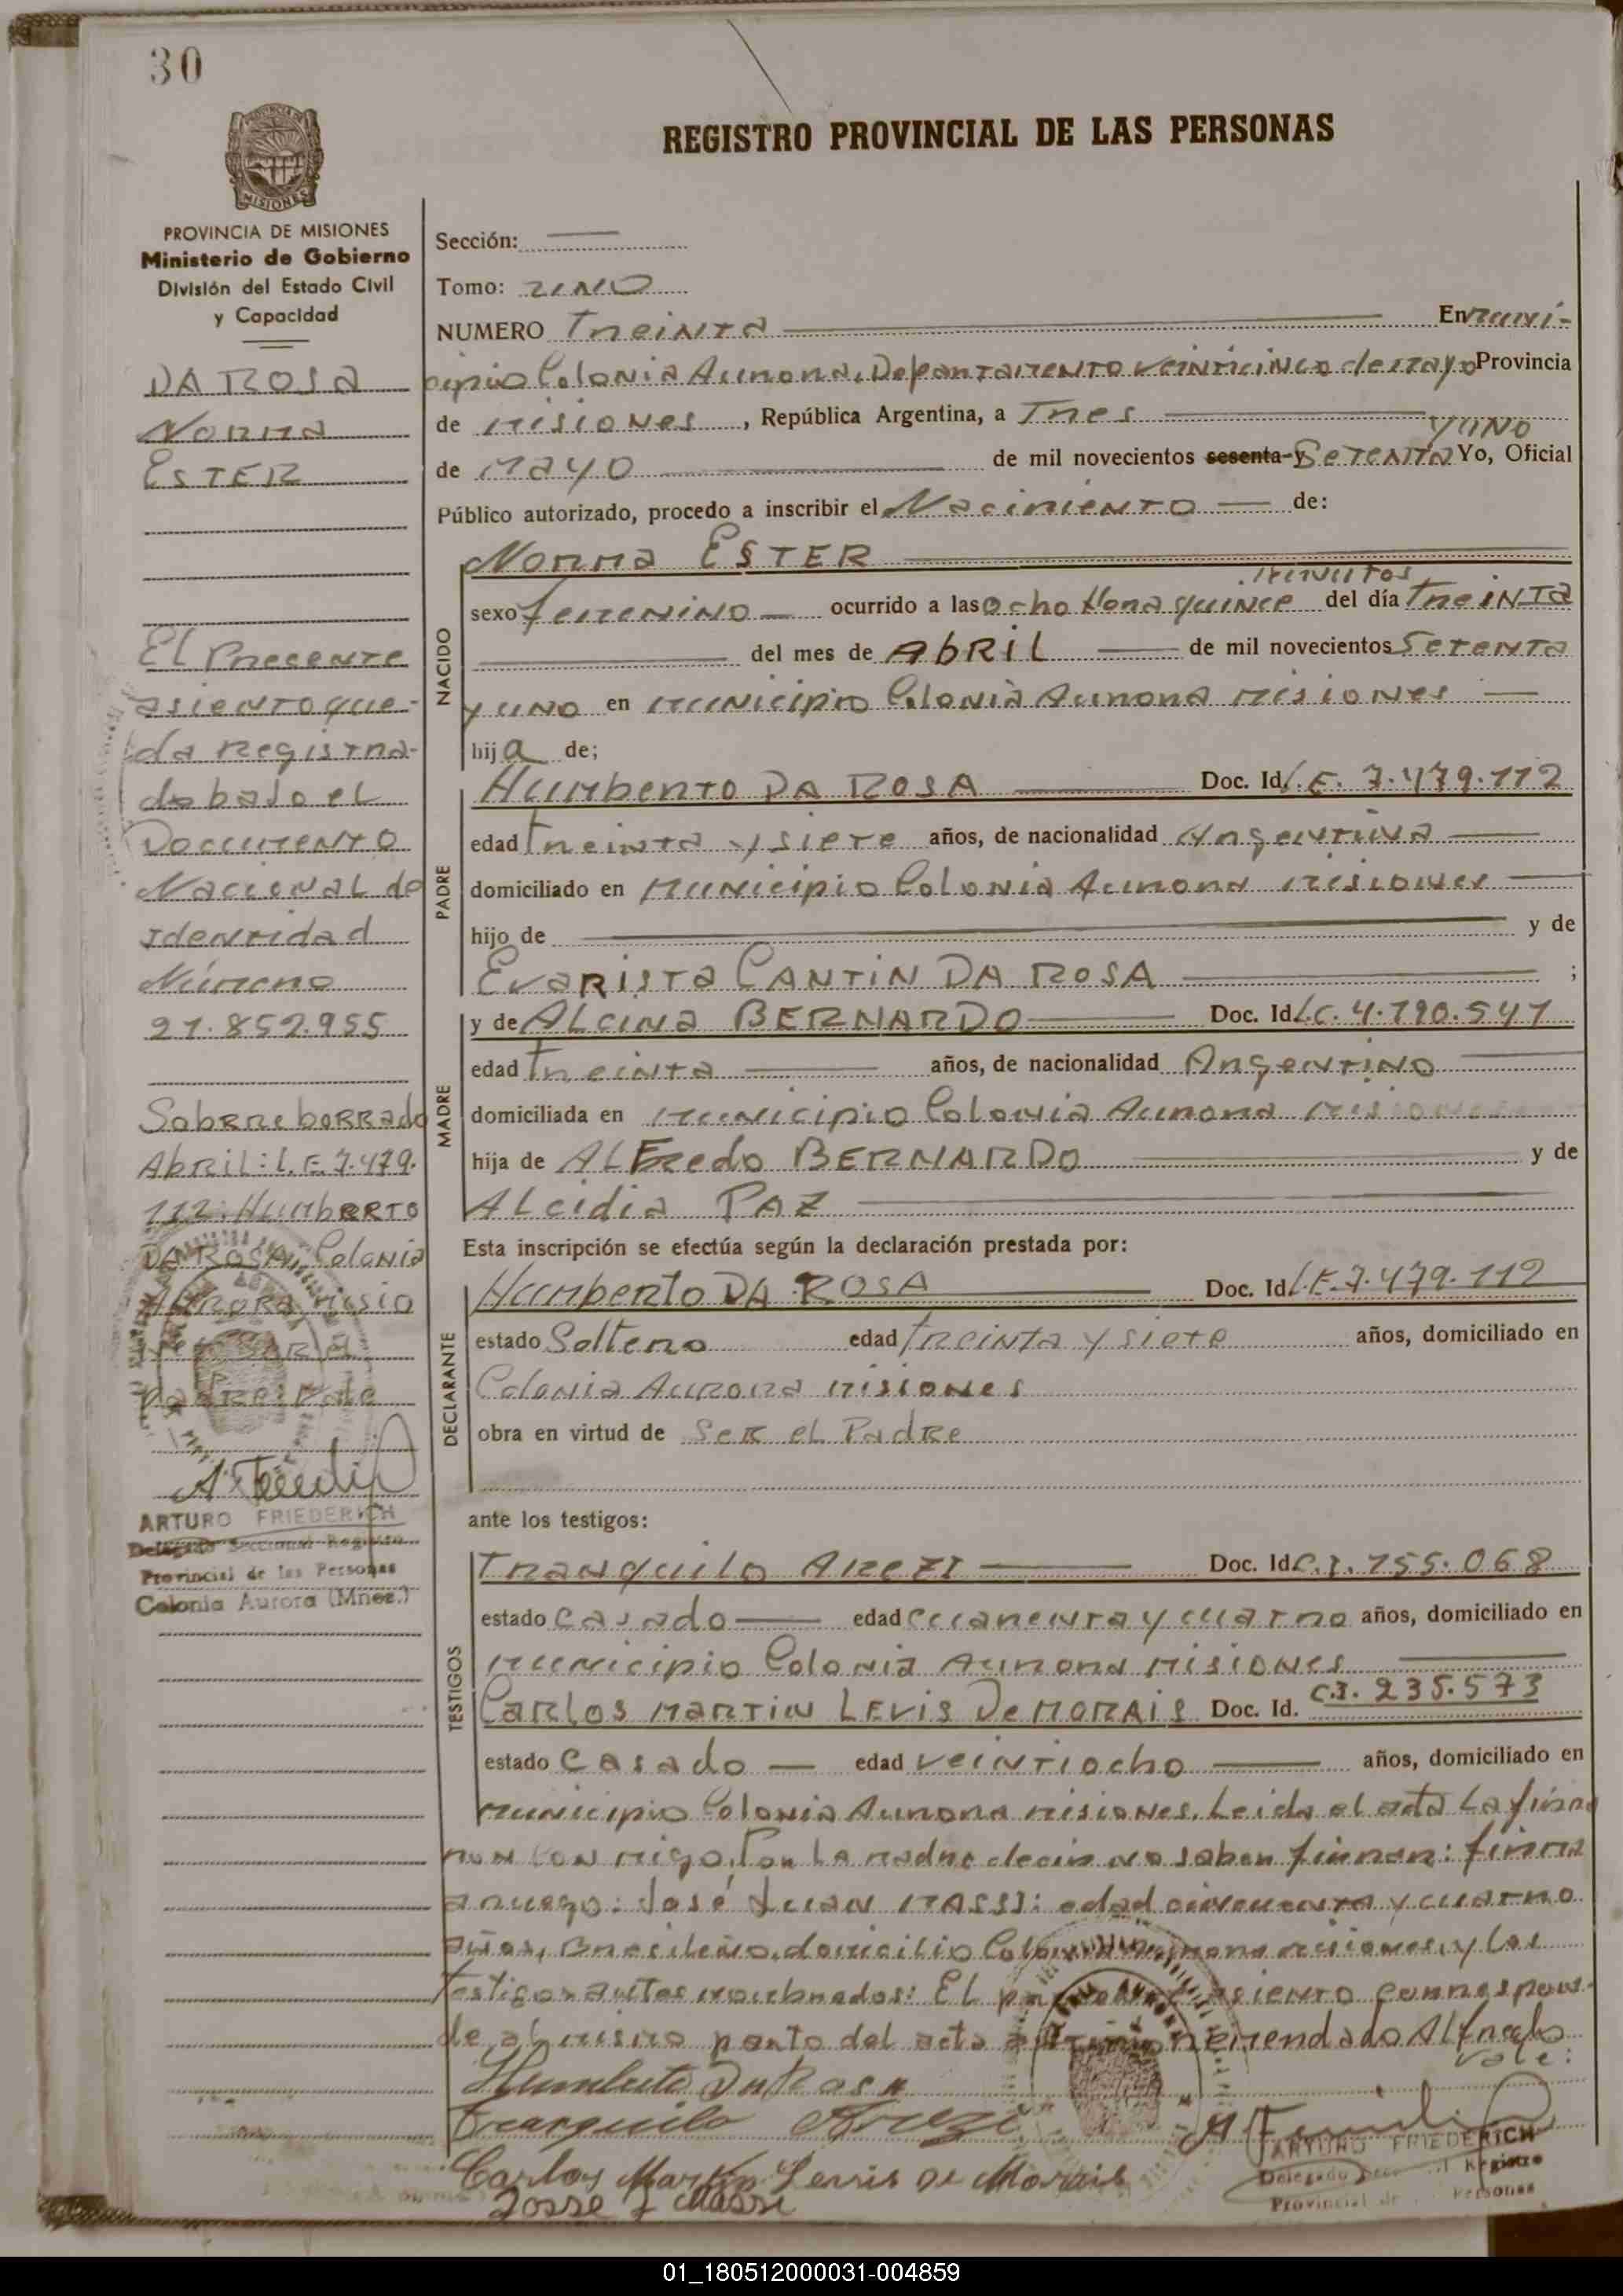 30
REGISTRO PROVINCIAL DE LAS PERSONAS
MISIONES
PROVINCIA DE MISIONES
Ministerio de Gobierno
División del Estado Civil
y Capacidad
DA ROSA
NORMA
ESTER
El Presente
asiento que-
da registra-
do bajo el
Documento
Nacional de
Identidad
Número
21.852.955
Sobrreborrado
Abril: L.E. 7.479.
112: Humberto
DA ROSA, Colonia
Aurora Misio
Padre: Vale
ARTURO FRIEDERICH
Delegado Seccional Registro
Provincial de las Personas
Colonia Aurora (Mnes.)
Sección:
Tomo: UNO
NUMERO Treinta En Muni-
cipio Colonia Aurora, Departamento Veinticinco de Mayo Provincia
de Misiones, República Argentina, a Tres
y UNO
de Mayo de mil novecientos sesenta y Setenta Yo, Oficial
Público autorizado, procedo a inscribir el Nacimiento de:
NACIDO
Norma ESTER
minutos
sexo femenino ocurrido a las ocho Hora quince del día Treinta
del mes de Abril de mil novecientos Setenta
y uno en Municipio Colonia Aurora Misiones
hija de;
PADRE
Humberto DA ROSA Doc. Id. L.E. 7.479.112
edad Treinta y siete años, de nacionalidad Argentina
domiciliado en Municipio Colonia Aurora Misiones
hijo de y de
Evarista CANTIN DA ROSA ;
MADRE
y de ALCINA BERNARDO Doc. Id L.C. 4.190.541
edad Treinta años, de nacionalidad Argentino
domiciliada en Municipio Colonia Aurora Misiones
hija de ALFredo BERNARDO y de
Alcidia PAZ
Esta inscripción se efectúa según la declaración prestada por:
DECLARANTE
Humberto DA ROSA Doc. Id L.E. 7.479.112
estado Soltero edad Treinta y siete años, domiciliado en
Colonia Aurora Misiones
obra en virtud de Ser el Padre
ante los testigos:
TESTIGOS
Tranquilo AREZI Doc. Id C.I. 155.068
estado Casado edad cuarenta y cuatro años, domiciliado en
Municipio Colonia Aurora Misiones
CARLOS MARTIN LEVIS De MORAIS Doc. Id. C.I. 235.573
estado Casado edad veintiocho años, domiciliado en
Municipio Colonia Aurora Misiones. Leida el acta La firma
ron con migo. Por La madre decir no saber firmar: firma
a ruego: José Juan MASSI: edad cincuenta y cuatro
años, Brasileño, domicilio Colonia Aurora Misiones, y los
testigos antes nombrados: El presente asiento correspon-
de al mismo parto del acta enmendado Alfredo
vale:
Humberto Da Rosa
Tranquilo Arezi
Carlos Martin Levis De Morais
Josse J Massi
ARTURO FRIEDERICH
Delegado Seccional Registro
Provincial de las Personas
01_180512000031-004859